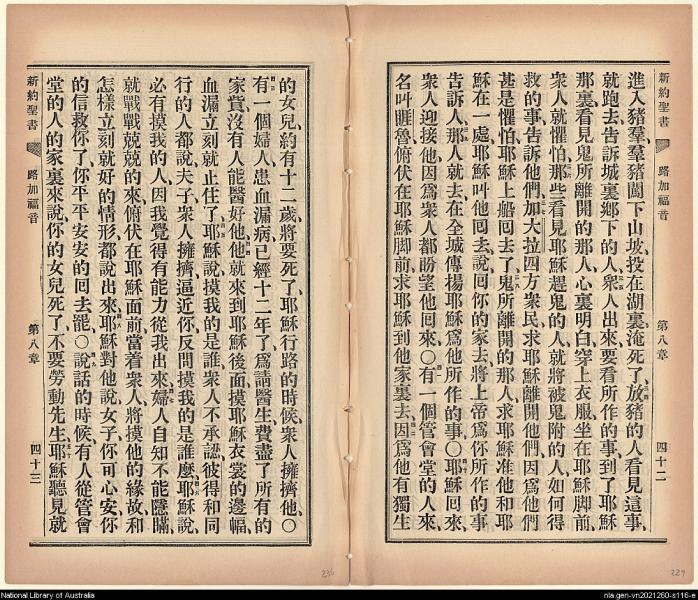 新約聖書 路加福音 第八章 四十二
進入豬羣羣豬闖下山坡投在湖裏淹死了放豬的人看見這事
就跑去告訴城裏鄉下的人衆人出來要看所作的事到了耶穌
那裏看見鬼所離開的那人心裏明白穿上衣服坐在耶穌脚前
衆人就懼怕那些看見耶穌趕鬼的人就將被鬼附的人如何得
救的事告訴他們加大拉四方衆民求耶穌離開他們因爲他們
甚是懼怕耶穌上船回去了鬼所離開的那人求耶穌准他和耶
穌在一處耶穌叫他回去說回你的家去將上帝爲你所作的事
告訴人那人就去在全城傳揚耶穌爲他所作的事〇耶穌回來
衆人迎接他因爲衆人都盼望他回來〇有一個管會堂的人來
名叫睚魯俯伏在耶穌脚前求耶穌到他家裏去因爲他有獨生
的女兒約有十二歲將要死了耶穌行路的時候衆人擁擠他〇
有一個婦人患血漏病已經十二年了爲請醫生費盡了所有的
家貲沒有人能醫好他他就來到耶穌後面摸耶穌衣裳的邊幅
血漏立刻就止住了耶穌說摸我的是誰衆人不承認彼得和同
行的人都說夫子衆人擁擠逼近你反問摸我的是誰麼耶穌說
必有摸我的人因我覺得有能力從我出來婦人自知不能隱瞞
就戰戰兢兢的來俯伏在耶穌面前當着衆人將摸他的緣故和
怎樣立刻就好的情形都說出來耶穌對他說女子你可心安你
的信救你了你平平安安的回去罷〇說話的時候有人從管會
堂的人的家裏來說你的女兒死了不要勞動先生耶穌聽見就
新約聖書 路加福音 第八章 四十三
229
National Library of Australia
nla.gen-vn2021260-s116-e